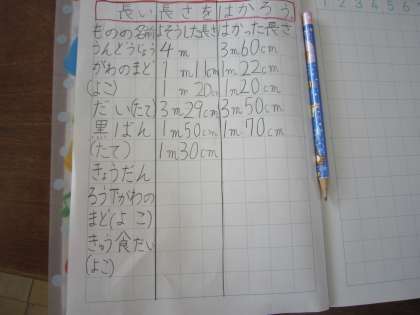 長い長さをはかろう
ものの名前 よそうした長さ はかった長さ
うんどうじょう 4m 3m60cm
がわのまど 1m11cm 1m22cm
(よこ) 1m20cm 1m20cm
だい(たて) 3m29cm 3m50cm
黒ばん 1m50cm 1m70cm
(たて) 1m30cm
きょうだん
ろう下がわの
まど(よこ)
きゅう食だい
(よこ)
1 2 3 4 5 6 7